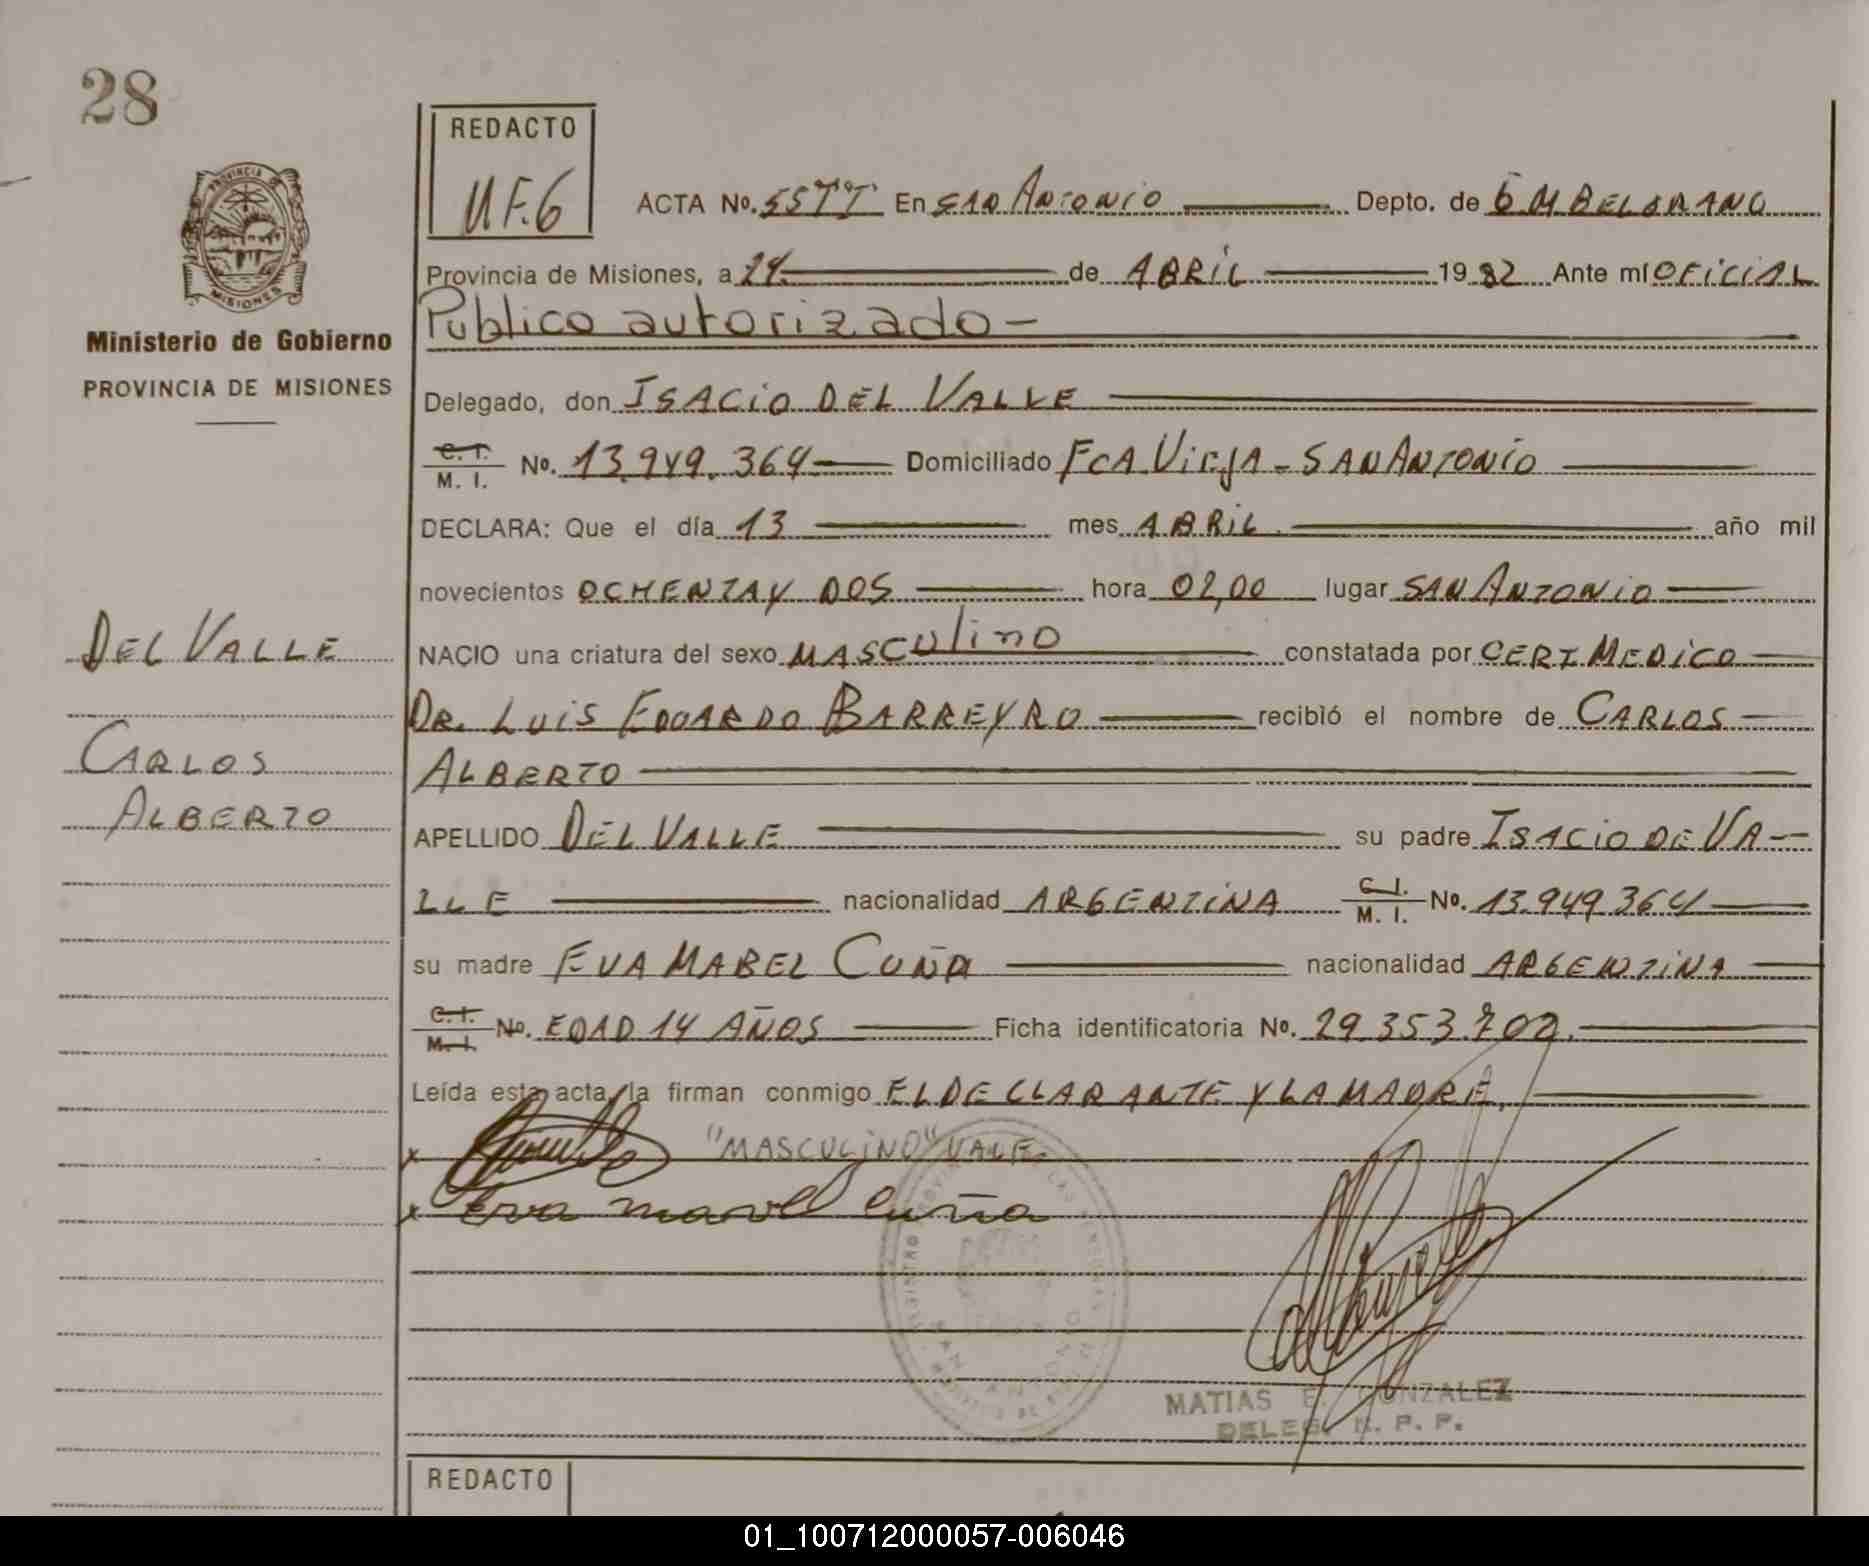 28
REDACTO
UF.6
PROVINCIA
MISIONES
Ministerio de Gobierno
PROVINCIA DE MISIONES
ACTA No. 55TT En SAN ANTONIO Depto. de G M BELGRANO
Provincia de Misiones, a 24 de ABRIL 1982 Ante mí OFICIAL
Publico autorizado-
Delegado, don ISACIO DEL VALLE
C. I. M. I. No. 13.949.364 Domiciliado FCA VIEJA - SAN ANTONIO
DECLARA: Que el día 13 mes ABRIL año mil
novecientos OCHENTA Y DOS hora 02,00 lugar SAN ANTONIO
NACIO una criatura del sexo MASCulino constatada por CERT MEDICO
DR. LUIS EDUARDO BARREYRO recibió el nombre de CARLOS
ALBERTO
APELLIDO DEL VALLE su padre ISACIO DE VA-
LLE nacionalidad ARGENTINA C. I. M. I. No. 13.949.364
su madre EVA MABEL CUÑA nacionalidad ARGENTINA
C. I. M. I. No. EDAD 14 AÑOS Ficha identificatoria No. 29.353.702.
Leída esta acta, la firman conmigo EL DECLLARANTE Y LA MADRE.
DEL VALLE
CARLOS
ALBERTO
x "MASCULINO" VALE.
x Eva mavel cuña
SAN ANTONIO
MATIAS E. GONZALEZ
DELEG. R. P. P.
REDACTO
01_100712000057-006046